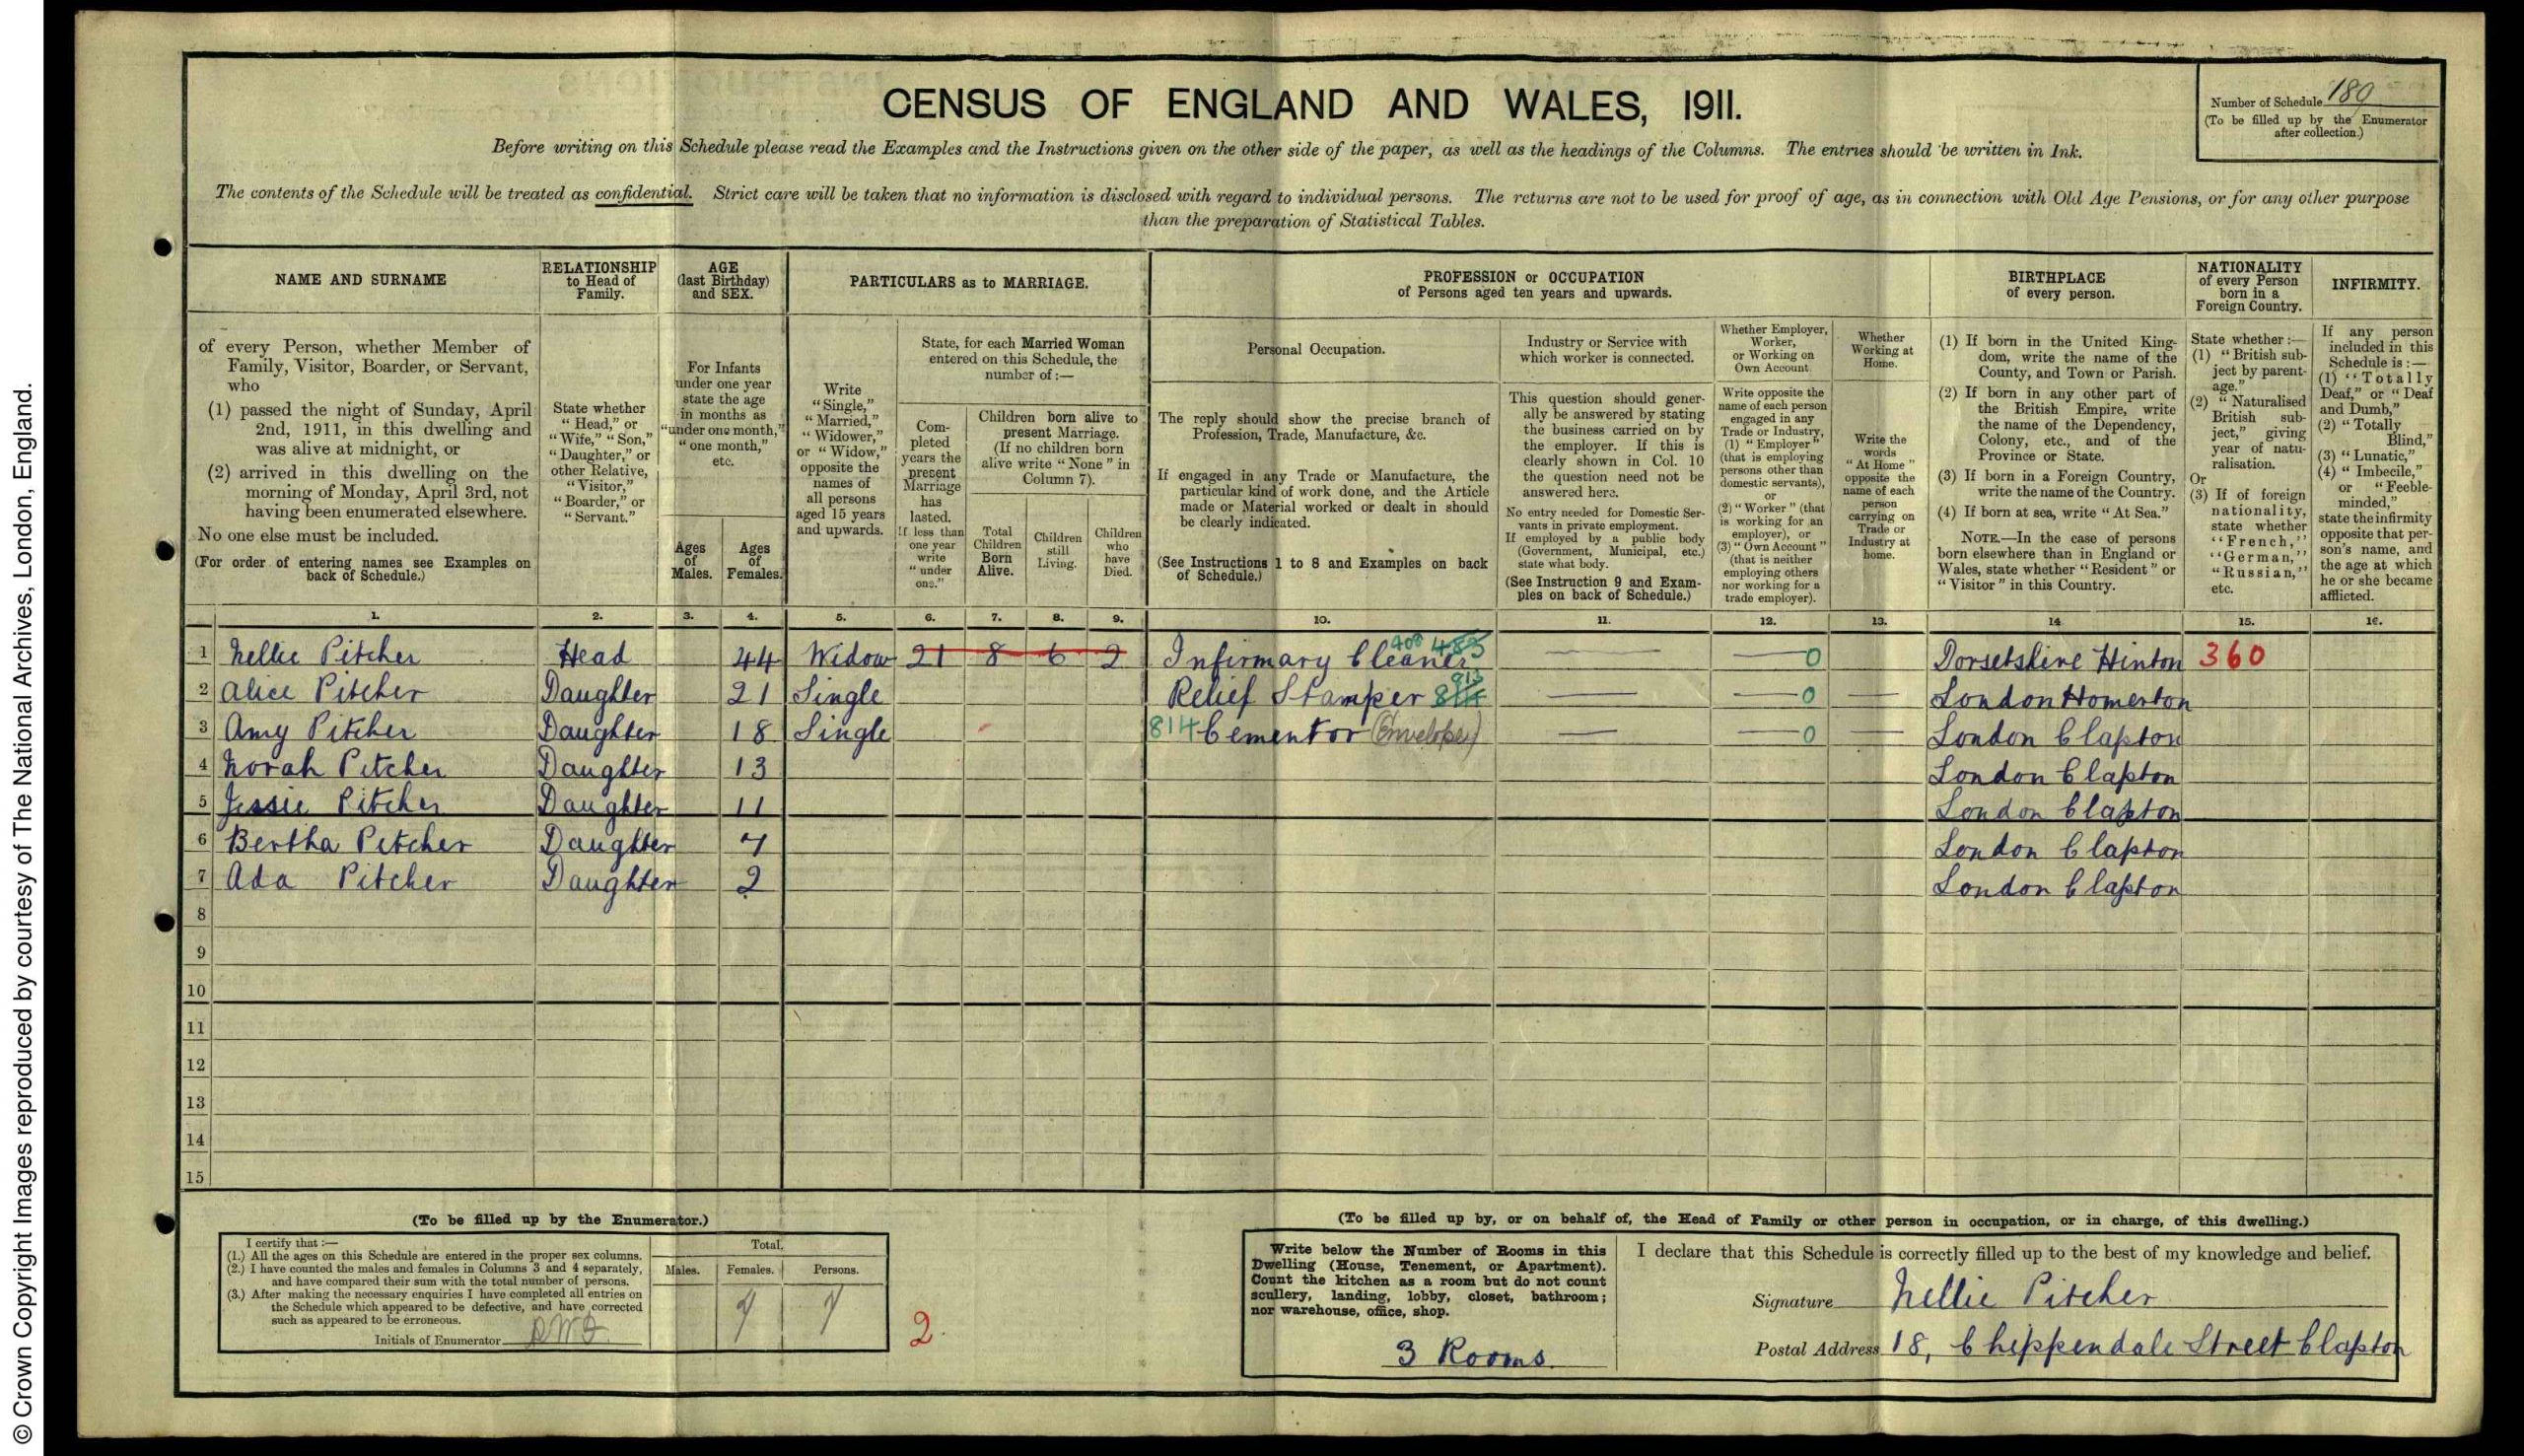 © Crown Copyright Images reproduced by courtesy of The National Archives, London, England.
CENSUS OF ENGLAND AND WALES, 1911.
Number of Schedule 189
(To be filled up by the Enumerator
after collection.)
Before writing on this Schedule please read the Examples and the Instructions given on the other side of the paper, as well as the headings of the Columns. The entries should be written in Ink.
The contents of the Schedule will be treated as confidential. Strict care will be taken that no information is disclosed with regard to individual persons. The returns are not to be used for proof of age, as in connection with Old Age Pensions, or for any other purpose
than the preparation of Statistical Tables.
NAME AND SURNAME
of every Person, whether Member of
Family, Visitor, Boarder, or Servant,
who
(1) passed the night of Sunday, April
2nd, 1911, in this dwelling and
was alive at midnight, or
(2) arrived in this dwelling on the
morning of Monday, April 3rd, not
having been enumerated elsewhere.
No one else must be included.
(For order of entering names see Examples on
back of Schedule.)
RELATIONSHIP
to Head of
Family.
State whether
"Head," or
"Wife," "Son,"
"Daughter," or
other Relative,
"Visitor,"
"Boarder," or
"Servant."
AGE
(last Birthday)
and SEX.
For Infants
under one year
state the age
in months as
"under one month,"
"one month,"
etc.
Ages
of
Males.
Ages
of
Females.
PARTICULARS as to MARRIAGE.
Write
"Single,"
"Married,"
"Widower,"
or "Widow,"
opposite the
names of
all persons
aged 15 years
and upwards.
State, for each Married Woman
entered on this Schedule, the
number of :—
Com-
pleted
years the
present
Marriage
has
lasted.
If less than
one year
write
"under
one."
Children born alive to
present Marriage.
(If no children born
alive write "None" in
Column 7).
Total
Children
Born
Alive.
Children
still
Living.
Children
who
have
Died.
PROFESSION or OCCUPATION
of Persons aged ten years and upwards.
Personal Occupation.
The reply should show the precise branch of
Profession, Trade, Manufacture, &c.
If engaged in any Trade or Manufacture, the
particular kind of work done, and the Article
made or Material worked or dealt in should
be clearly indicated.
(See Instructions 1 to 8 and Examples on back
of Schedule.)
Industry or Service with
which worker is connected.
This question should gener-
ally be answered by stating
the business carried on by
the employer. If this is
clearly shown in Col. 10
the question need not be
answered here.
No entry needed for Domestic Ser-
vants in private employment.
If employed by a public body
(Government, Municipal, etc.)
state what body.
(See Instruction 9 and Exam-
ples on back of Schedule.)
Whether Employer,
Worker,
or Working on
Own Account.
Write opposite the
name of each person
engaged in any
Trade or Industry,
(1) "Employer"
(that is employing
persons other than
domestic servants),
or
(2) "Worker" (that
is working for an
employer), or
(3) "Own Account"
(that is neither
employing others
nor working for a
trade employer).
Whether
Working at
Home.
Write the
words
"At Home"
opposite the
name of each
person
carrying on
Trade or
Industry at
home.
BIRTHPLACE
of every person.
(1) If born in the United King-
dom, write the name of the
County, and Town or Parish.
(2) If born in any other part of
the British Empire, write
the name of the Dependency,
Colony, etc., and of the
Province or State.
(3) If born in a Foreign Country,
write the name of the Country.
(4) If born at sea, write "At Sea."
NOTE.—In the case of persons
born elsewhere than in England or
Wales, state whether "Resident" or
"Visitor" in this Country.
NATIONALITY
of every Person
born in a
Foreign Country.
State whether :—
(1) "British sub-
ject by parent-
age."
(2) "Naturalised
British sub-
ject," giving
year of natu-
ralisation.
Or
(3) If of foreign
nationality,
state whether
"French,"
"German,"
"Russian,"
etc.
INFIRMITY.
If any person
included in this
Schedule is :—
(1) "Totally
Deaf," or "Deaf
and Dumb,"
(2) "Totally
Blind,"
(3) "Lunatic,"
(4) "Imbecile,"
or "Feeble-
minded,"
state the infirmity
opposite that per-
son's name, and
the age at which
he or she became
afflicted.
1. 2. 3. 4. 5. 6. 7. 8. 9. 10. 11. 12. 13. 14 15. 16.
1 Nellie Pitcher Head 44 Widow 21 8 6 2 Infirmary Cleaner 400 0 Dorsetshire Hinton 360
2 Alice Pitcher Daughter 21 Single Relief Stamper 813 0 London Homerton
3 Amy Pitcher Daughter 18 Single 814 Cementor (Envelopes) 0 London Clapton
4 Norah Pitcher Daughter 13 London Clapton
5 Jessie Pitcher Daughter 11 London Clapton
6 Bertha Pitcher Daughter 7 London Clapton
7 Ada Pitcher Daughter 2 London Clapton
8
9
10
11
12
13
14
15
(To be filled up by the Enumerator.)
I certify that :—
(1.) All the ages on this Schedule are entered in the proper sex columns.
(2.) I have counted the males and females in Columns 3 and 4 separately,
and have compared their sum with the total number of persons.
(3.) After making the necessary enquiries I have completed all entries on
the Schedule which appeared to be defective, and have corrected
such as appeared to be erroneous.
Initials of Enumerator
Total.
Males. Females. Persons.
7 7
2
(To be filled up by, or on behalf of, the Head of Family or other person in occupation, or in charge, of this dwelling.)
Write below the Number of Rooms in this
Dwelling (House, Tenement, or Apartment).
Count the kitchen as a room but do not count
scullery, landing, lobby, closet, bathroom;
nor warehouse, office, shop.
3 Rooms
I declare that this Schedule is correctly filled up to the best of my knowledge and belief.
Signature Nellie Pitcher
Postal Address 18, Chippendale Street Clapton